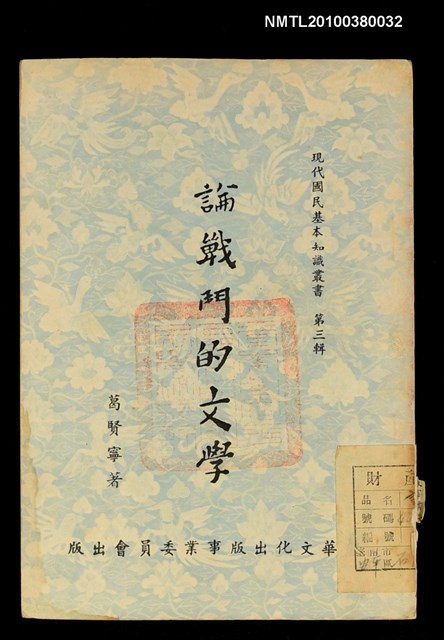 NMTL20100380032
現代國民基本知識叢書　第三輯
論戰鬥的文學
葛賢寧著
華文化出版事業委員會出版
財
品名
號碼
編號